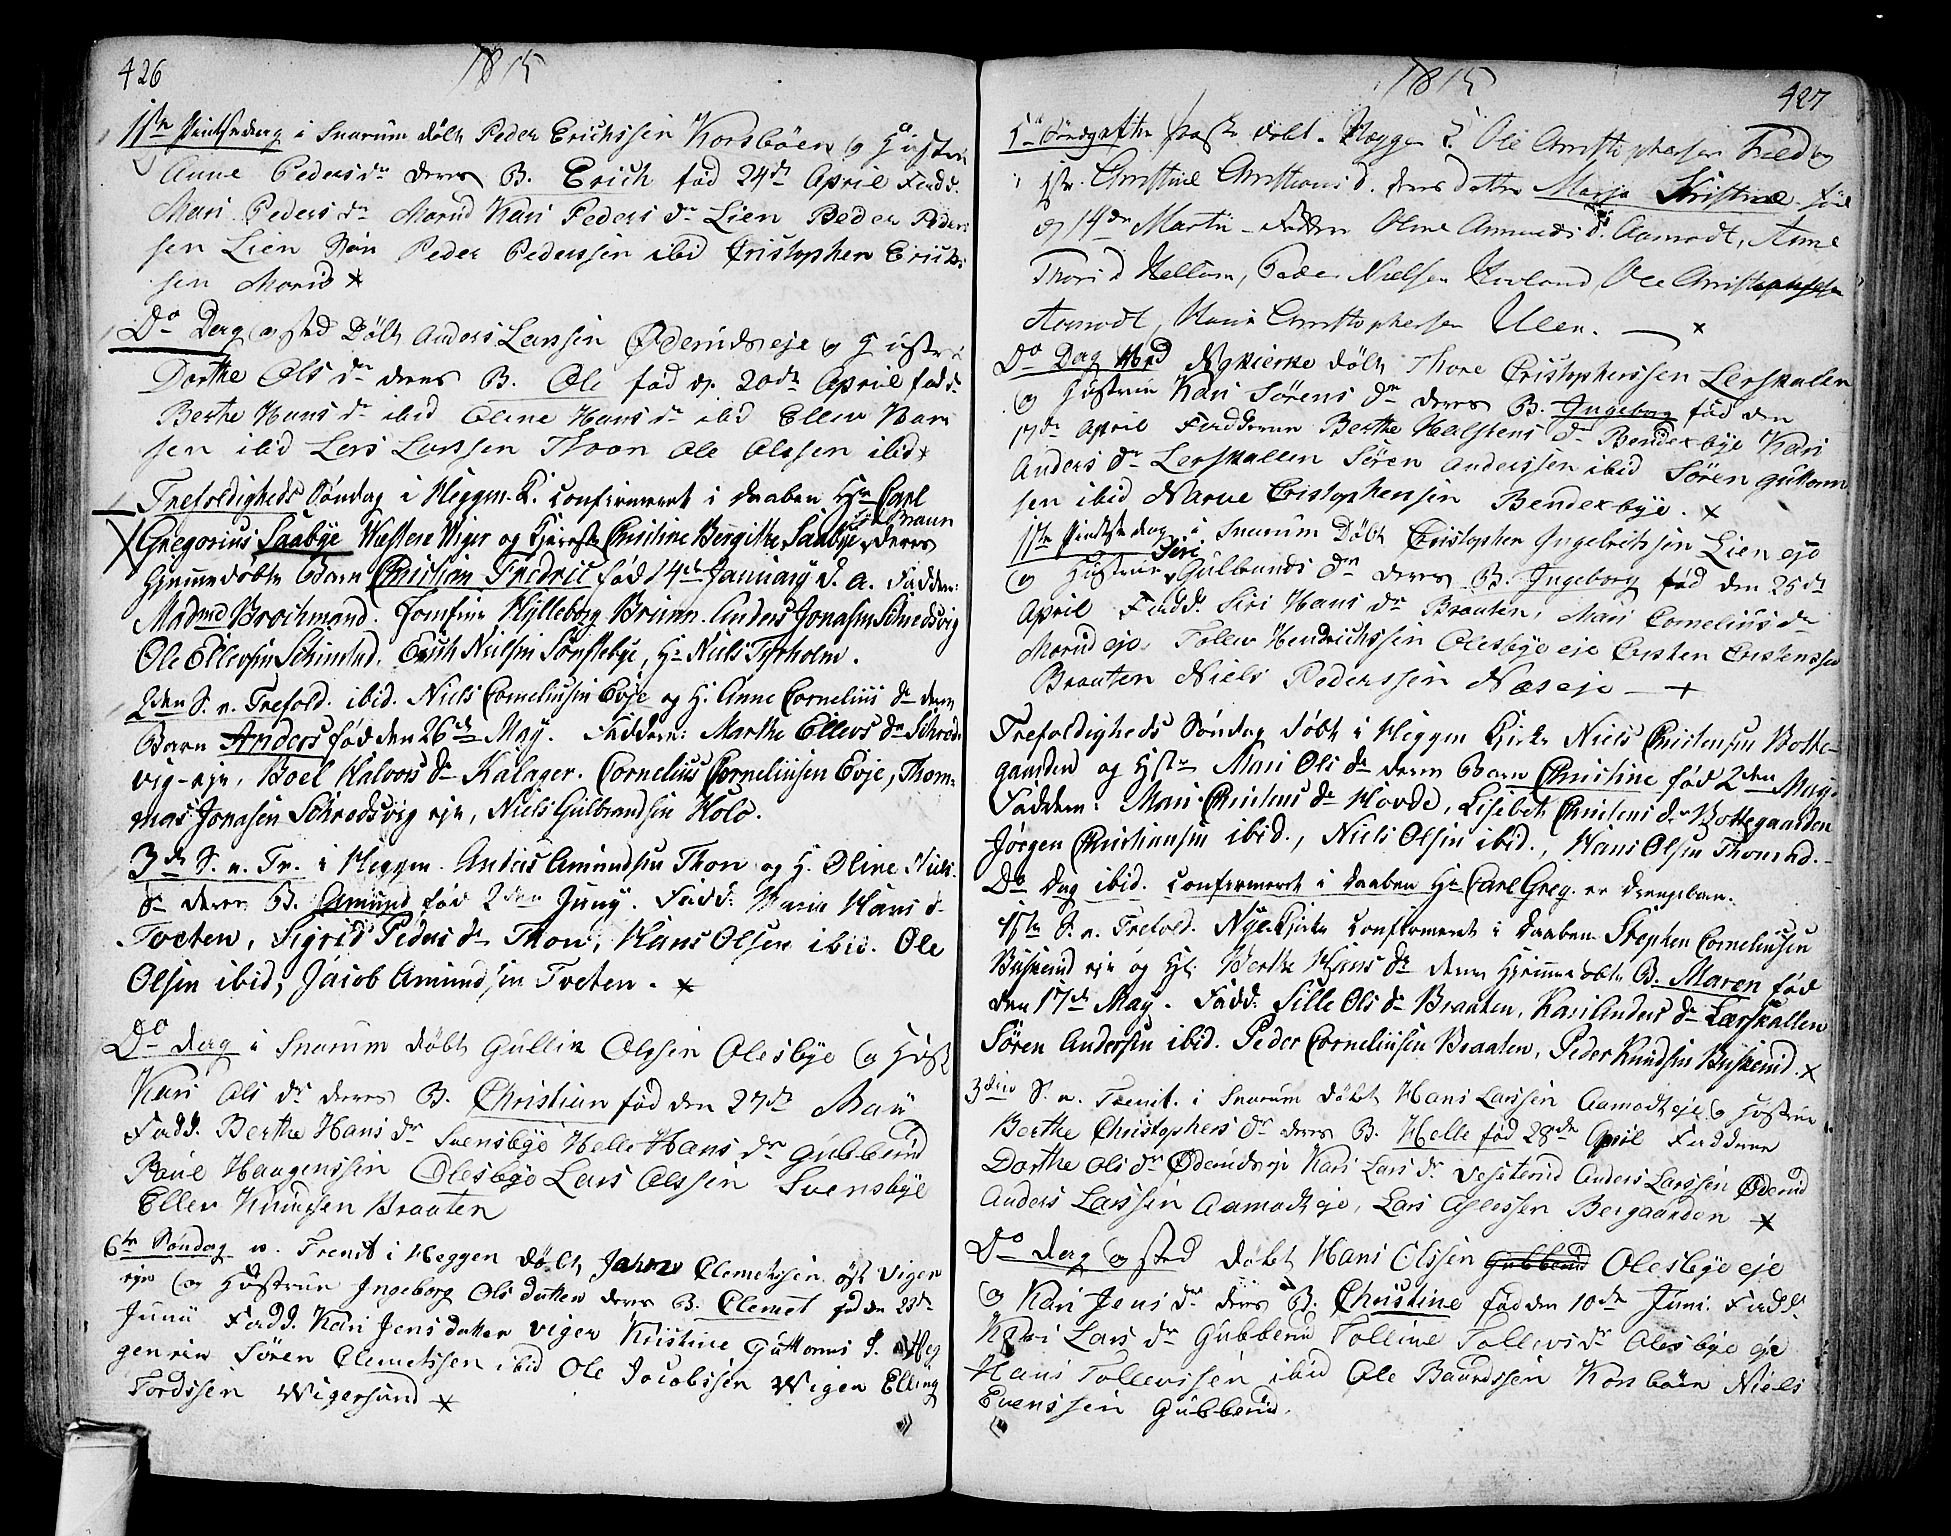 426
1815
11te Pintsedag i Snarum døbt Peder Erichssen Korsbøen og Hustru
Anne Pedersdr deres B. Erich fød 24de April Fadd.
Mari Peders dr Morud Kari Peders dr Lien Peder Peder
sen Lien Peder Pederssen ibid Cristopher Erichs
sen Morud
Do Dag og sted Døbt Anders Larssen Øderudseje og Hustru
Dorthe Ols dr deres B. Ole fød d. 20de April fadd.
Berthe Hans dr ibid Oline Hans dr ibid Ellev
sen ibid Lars Larssen Thoen Ole Olssen ibid
Trefoldigheds Søndag i Heggen K. confirmeret i daaben Hr Carl
Gregorius Saabye Westere Wiger og Kjereste Christine Birgitte Saabye fød Bruun deres
hjemmedøbte Barn Christian Fredric fød 14de January d. a. Fadder:
Madmd Brochmand. Jomfrue Hylleborg Bruun. Anders Jonasen Schredsvig
Ole Ellevsen Schinstad, Erich Nielsen Sønstebye, Hr Niels Tyrholm.
2den S. e. Trefold. ibid. Niels Corneliusen Evje og H. Anne Cornelius dr deres
Barn Anders fød den 26de May. Faddere: Marthe Ellevs dr Schreds
vig-eje, Boel Halvors dr Kalager. Cornelius Corneliusen Evje, Thom-
mas Jonasen Schredsvig eje, Niels Gulbrandsen Hole.
3de S. e. Tr. i Heggen. Anders Amundsen Thon og H. Oline Niels
dr deres B. Amund fød 2den Juny. Fadd: Marie Hans d.
Tveten, Sigrid Peders dr Thon, Hans Olsen ibid. Ole
Olsen ibid, Jacob Amundsen Tveten.
Do dag i Snarum døbt Gullik Olssen Olesbye og Hust
Kari Ols dr deres B. Christian fød den 27de Maii
Fadd. Berthe Hans dr Svensbye Helle Hans dr Gubberud
Poul Haagenssen Olesbye Lars Olssen Svensbye
Ellev Knudsen Braaten
6te Søndag e. Trenit i Heggen døbt Johan Clemetssen øst Viger
eje og Hustrue Ingeborg Ols datter deres B. Clemet fød den 23de
Junii Fadd. Kari Jensdatter Viger Kristine Guttorms d. Heg
gen eie Søren Clemetssen ibid Ole Jacobssen Wiger Elling
Tordssen Wigersund
1815
427
5te Søndg efter døbt. Heggen K. Ole Christophersen Field og
Christine Christians d. deres datter Marja Kristine fød
d 14de Martii Faddere Oline Amunds d. Aamodt, Anne
Thorsd Hellum, Peder Nielsen Hovland, Ole Christophersen
Aamodt, Hans Christophersen Ulen.
Do Dag ved Nykierke døbt Thore Cristopherssen Lerskalen
og Hustrue Kari Sørens dr deres B. Ingeborg fød den
17de April Fadderne Berthe Halstens dr Bendexbye Kari
Anders dr Lerskallen Søren Anderssen ibid Søren Guttorm
sen ibid Narve Cristophersen Bendexbye.
11te Pindsedag i Snarum Døbt Christopher Ingebretssen Lien eje
og Hustrue Siri Gulbrands dr deres B. Ingeborg fød den 25de
April Fadd. Siri Hans dr Braaten, Mari Cornelius dr
Morud eje Tollev Hendrichssen Olesbye eje Cristen Cristenssen
Braaten Niels Pederssen Næs eje
Trefoldigheds Søndag døbt i Heggen Kirke Niels Christensen Botte-
gaarden og Hstr Mari Ols dr deres Barn Christine fød 2den May.
Faddere: Mari Christens dr Hovde, Lisebet Christens dr Bottegaarden
Jørgen Christiansen ibid., Niels Olsen ibid., Hans Olsen Thorud.
Do Dag ibid. confirmeret i daaben Hr Carl Greg. er drengebarn.
4de S. e. Trefold. NyeKirke confirmeret i Daaben Stephen Corneliusen
Buskerud eje og Hst: Berthe Hans dr deres hjemmedøbte B. Maren fød
den 17de May. Fadd: Sille Ols dr Braaten, Kari Anders dr Lærskallen
Søren Andersen ibid. Peder Corneliusen Braaten, Peder Knudsen Buskerud.
3die S. e. Trenit. i Snarum døbt Hans Larssen Aamodt eje og Hustrue
Berthe Christophers dr deres B. Helle fød 28de April Faddere
Dorthe Ols dr Øderuds eje Kari Lars dr Vesæterud Anders Larssen Øderud
Anders Larssen Aamodt eje, Lars Aslessen Bergaarden
Do dag og sted døbt Hans Olssen Gubberud Olesbye eje
og Kari Jens dr deres B. Christine fød den 10de Juni Fadd.
Kari Lars dr Gubberud Tolline Tollevs dr Olesbye eje
Hans Tollevssen ibid Ole Baardssen Korsbøen Niels
Evenssen Gubberud.